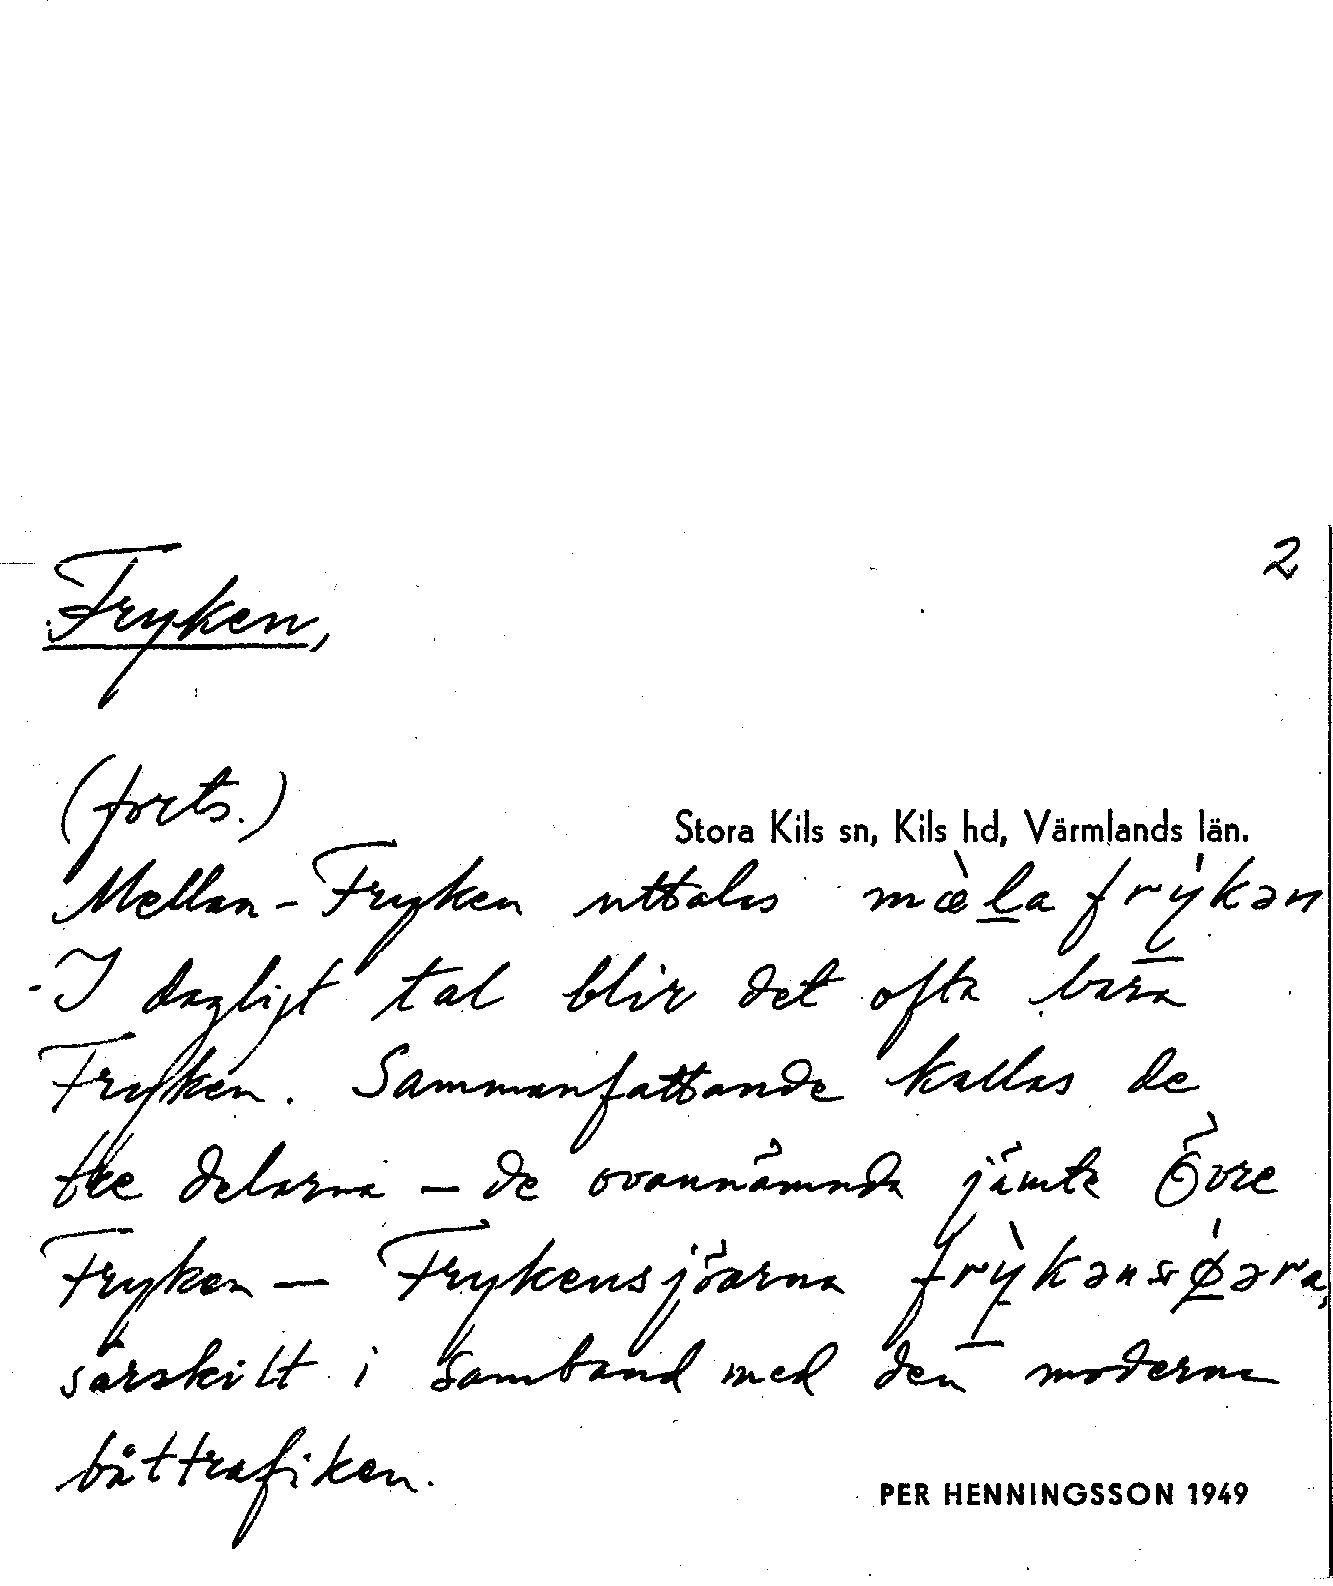 2
Fryken,
(forts.)
Stora Kils sn, Kils hd, Värmlands län.
Mellan-Fryken uttalas mæ̀l̲a frýkən
- I dagligt tal blir det ofta bara
Fryken. Sammanfattande kallas de
tre delarna – de ovannämnda jämte Övre
Fryken – Frykensjöarna
särskilt i samband med den moderna
båttrafiken.
PER HENNINGSSON 1949